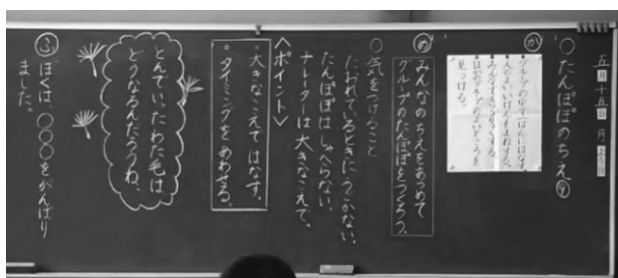 五月十五日 月よう日
○たんぽぽのちえ⑨
か
グループの中で一ばんにはなす。
人のよいいけんをまねする。
見つける。
め
みんなのちえをあつめて
グループのたんぽぽをつくろう。
○気をつけること
たおれているときにうごかない。
たんぽぽはしゃべらない。
ナレーターは大きなこえで。
〈ポイント〉
・大きなこえではなす。
・タイミングをあわせる。
とんでいったわた毛は、
どうなるんだろうね。
ふ
ぼくは、○○○をがんばり
ました。